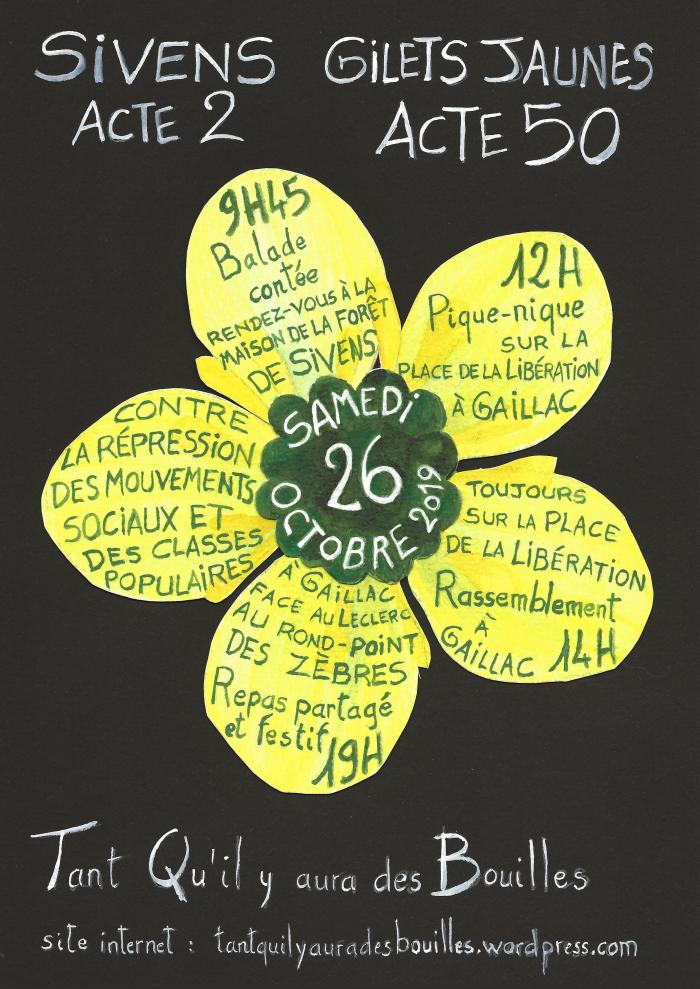 SiVENS
ACTE 2
GiLETS JAUNES
ACTE 50
9H45
Balade
contée
RENDEZ-VOUS À LA
MAISON DE LA FORÊT
DE SiVENS
12H
Pique-nique
SUR LA
PLACE DE LA LiBÉRATiON
À GAiLLAC
TOUJOURS
SUR LA PLACE
DE LA LiBÉRATiON
Rassemblement
À
GAiLLAC 14H
À GAiLLAC
FACE AU LECLERC
AU ROND-POiNT
DES ZÈBRES
Repas partagé
et festif
19H
CONTRE
LA RÉPRESSiON
DES MOUVEMENTS
SOCiAUX ET
DES CLASSES
POPULAiRES
SAMEDi
26
OCTOBRE 2019
Tant Qu'il y aura des Bouilles
site internet : tantquilyauradesbouilles.wordpress.com